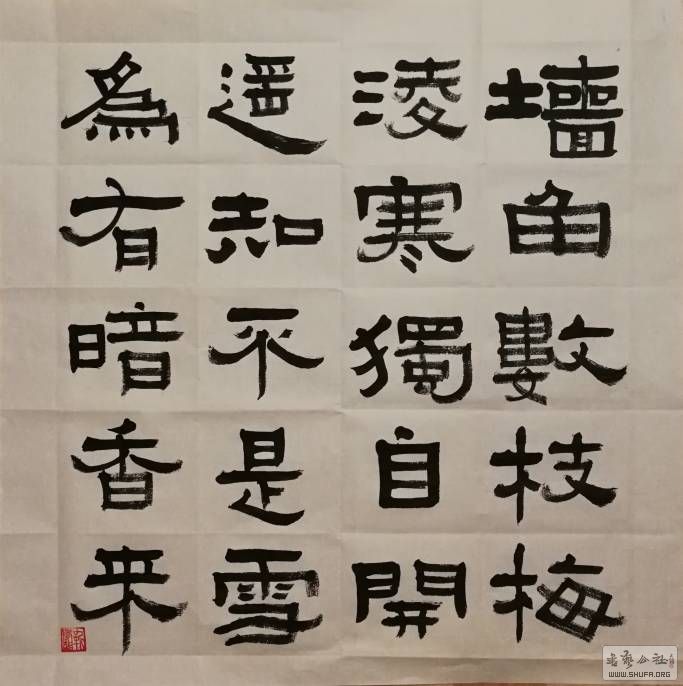 墻角數枝梅
淩寒獨自開
遥知不是雪
為有暗香来
WWW.SHUFA.ORG